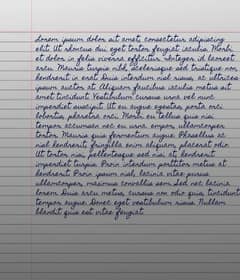 Lorem ipsum dolor sit amet, consectetur adipiscing
elit. Ut rhoncus dui eget tortor feugiat iaculis. Morbi
et dolor in felis viverra efficitur. Integer id laoreet
arcu. Mauris turpis nisl, scelerisque sed tristique non,
hendrerit in erat. Duis interdum nisl risus, ac ultrices
ipsum auctor at. Aliquam faucibus iaculis metus sit
amet tincidunt. Vestibulum cursus urna vel nunc
imperdiet suscipit. Ut eu augue egestas, porta orci
lobortis, pharetra orci. Morbi eu tellus quis nisi
tempor accumsan nec eu urna. ullamcorper
tortor. Mauris quis fermentum augue. Phasellus at
nisl hendrerit, fringilla enim aliquam, placerat odio.
Ut tortor nisi, pellentesque sed nisi at, hendrerit
imperdiet turpis. Proin interdum porttitor metus at
hendrerit. Proin ipsum nisl, lacinia vitae purus
ullamcorper, maximus convallis sem. Sed nec lacinia
lorem. Duis arcu metus, cursus non odio quis, tincidunt
tempor augue. Donec eget vestibulum risus. Nullam
blandit quis est vitae feugiat.